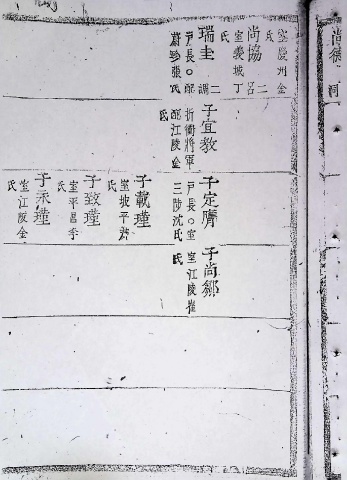 室慶州金
氏
尚協 召二
室義城丁
氏
瑞圭 二
戸長○配
蔚珍張氏
子宜教
折衝將軍
配江陵金
氏
子定膺
戸長○室
三陟沈氏
子尚鄉
室江陵崔
氏
子載瑾
室坡平尹
氏
子致瑾
室平昌李
氏
子永瑾
室江陵金
氏